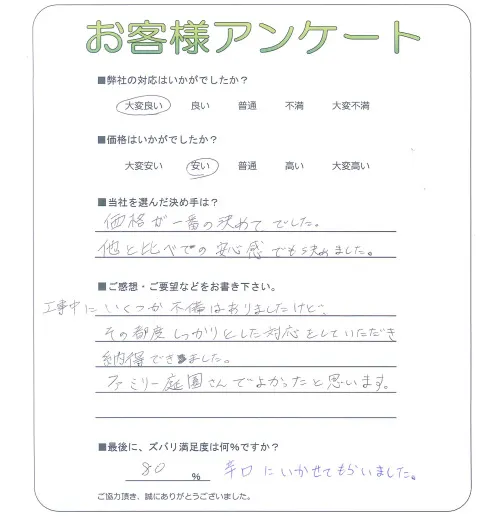 お客様アンケート
■弊社の対応はいかがでしたか？
大変良い 良い 普通 不満 大変不満
■価格はいかがでしたか？
大変安い 安い 普通 高い 大変高い
■当社を選んだ決め手は？
価格が一番の決めてでした。
他と比べての安心感でも決めました。
■ご感想・ご要望などをお書き下さい。
工事中にいくつか不備はありましたけど、
その都度しっかりとした対応をしていただき
納得できました。
ファミリー庭園さんでよかったと思います。
■最後に、ズバリ満足度は何%ですか？
80 % 辛口にいかせてもらいました。
ご協力頂き、誠にありがとうございました。